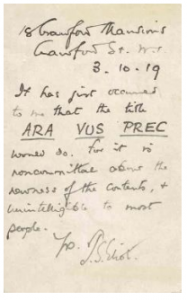 18 Crawford Mansions
Crawford St. W.1
3.10.19
It has just occurred
to me that the title
ARA VUS PREC
would do. For it is
noncommittal about the
newness of the contents, &
unintelligible to most
people.
Yrs.
T.S. Eliot.